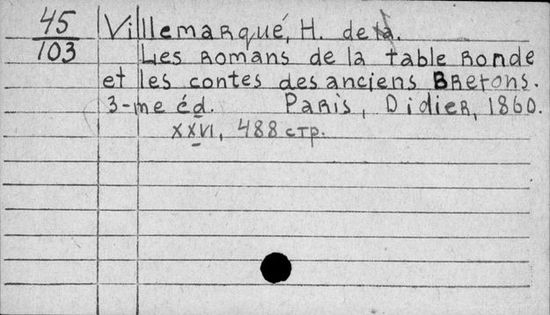 45
103
Villemarqué, H. de la.
Les romans de la table ronde
et les contes des anciens Bretons.
3-me éd. Paris, Didier, 1860.
XXVI, 488 стр.